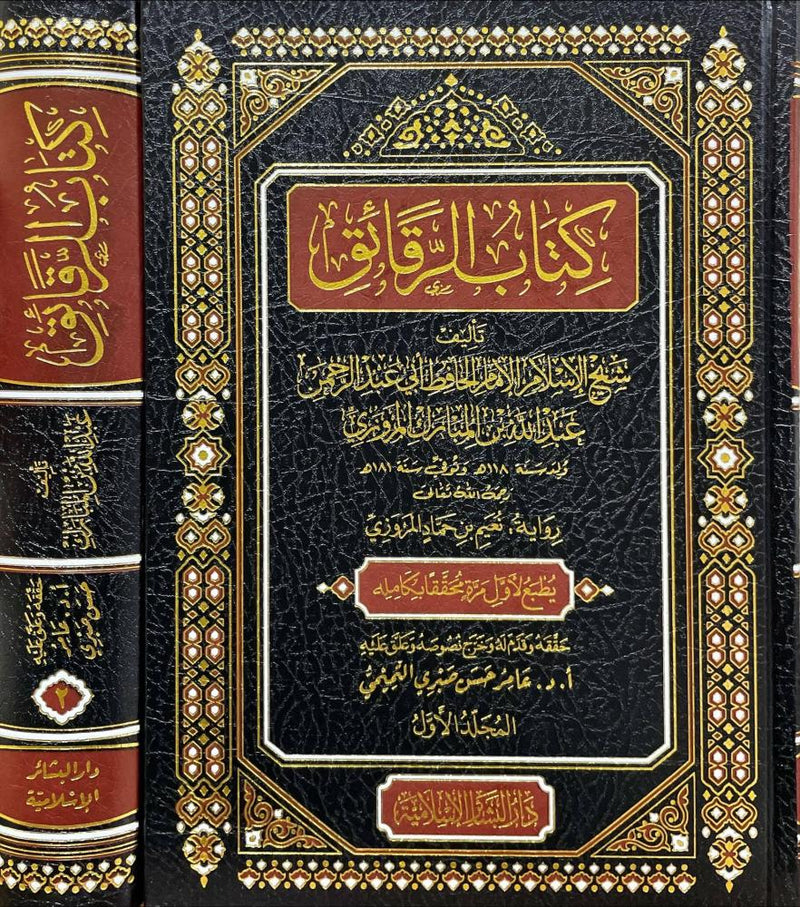 كِتَابُ الرَّقَائِقِ
تَأليفُ
شَيْخِ الإِسْلَامِ الإِمَامِ الحَافِظِ أَبِي عَبْدِ الرَّحْمَنِ
عَبْدِ اللَّهِ بْنِ المُبَارَكِ المَرْوَزِيِّ
وُلِدَ سَنَةَ ١١٨هـ وَتُوفِّيَ سَنَةَ ١٨١هـ
رَحِمَهُ اللهُ تَعَالى
رِوَايَةُ: نُعَيْمِ بْنِ حَمَّادٍ المَرْوَزِيِّ
يُطْبَعُ لأَوَّلِ مَرَّةٍ مُحَقَّقًا بِكَامِلِهِ
حَقَّقَهُ وَقَدَّمَ لَهُ وَخَرَّجَ نُصُوصَهُ وَعَلَّقَ عَلَيْهِ
أ. د. عَامِر حَسَن صَبْرِي التَّمِيمِيُّ
المُجَلَّدُ الأَوَّلُ
دَارُ البَشَائِرِ الإِسْلَامِيَّةِ
كِتَابُ الرَّقَائِقِ
تَأليفُ
عَبْدِ اللهِ بْنِ المُبَارَكِ
حَقَّقَهُ وَعَلَّقَ عَلَيْهِ
أ. د. عَامِر
حَسَن صَبْرِي
٢
دار البشائر
الإسلاميّة